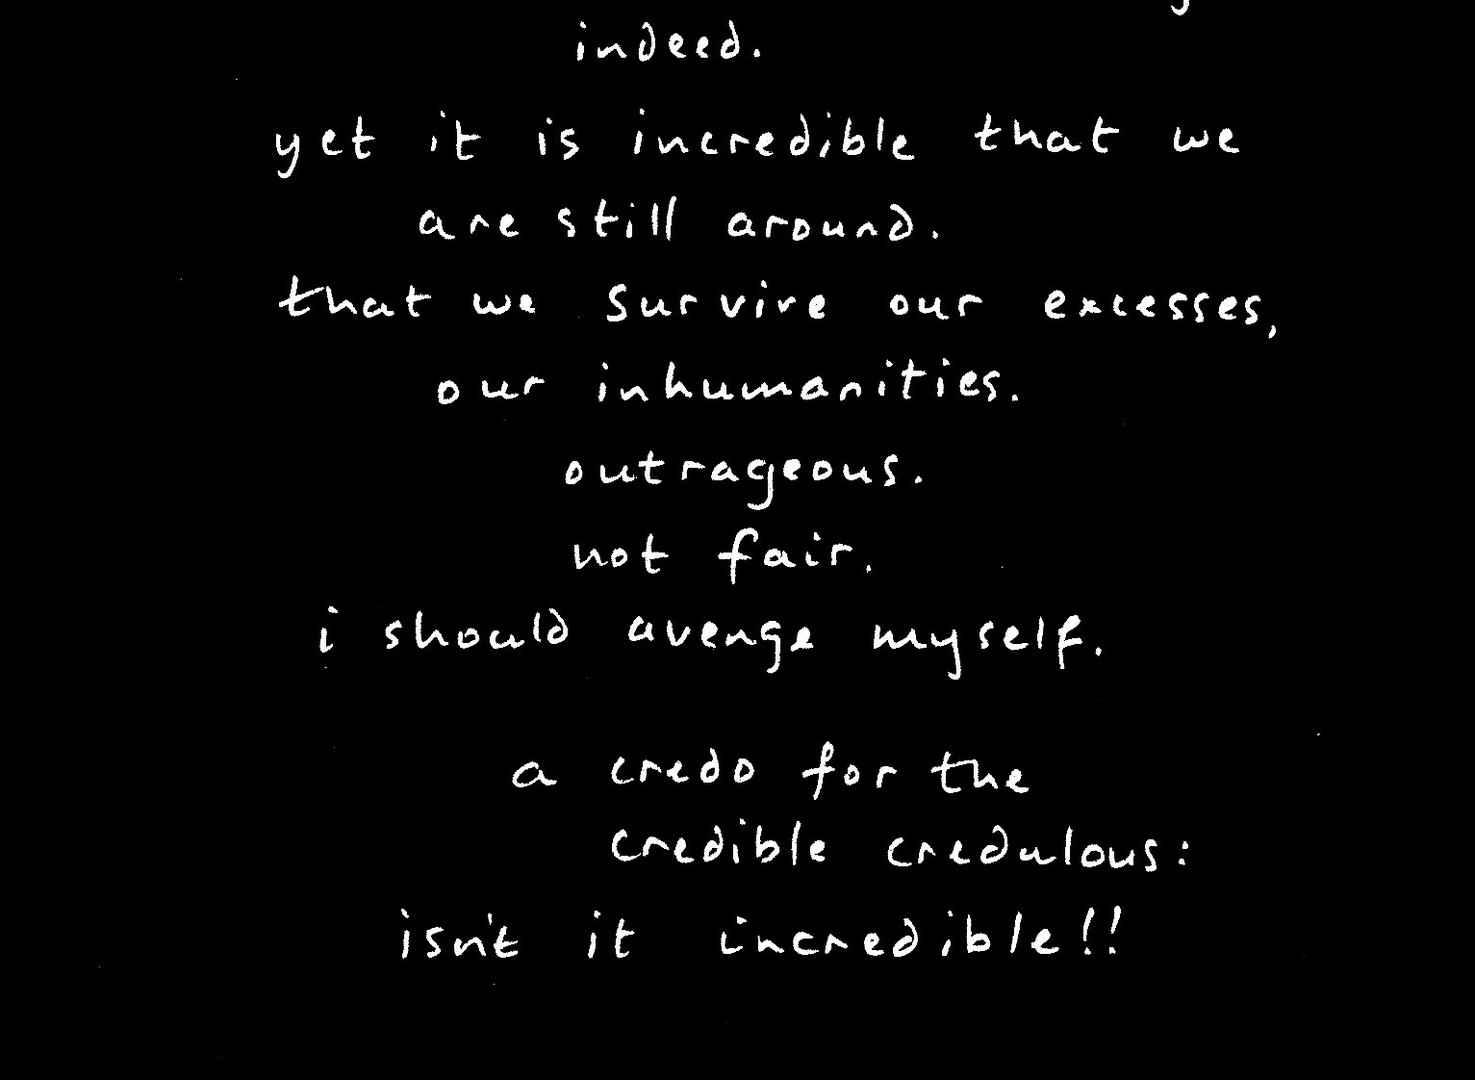 indeed.
yet it is incredible that we
are still around.
that we survive our excesses,
our inhumanities.
outrageous.
not fair.
i should avenge myself.
a credo for the
credible credulous:
isn't it incredible!!